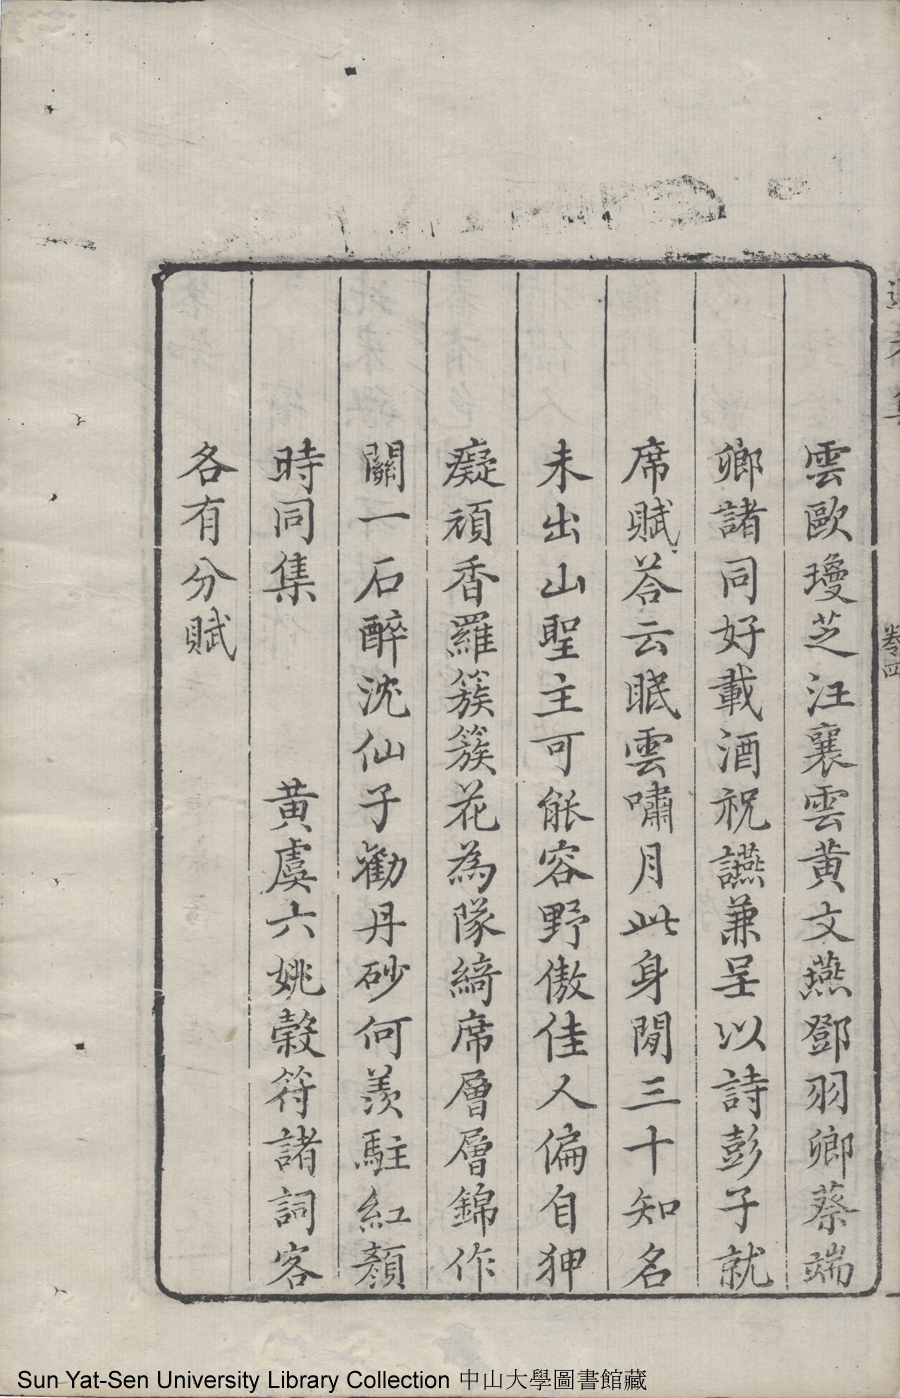 雲歐瓊芝汪襄雲黄文燕鄧羽卿蔡端
卿諸同好載酒祝讌兼呈以詩彭子就
席賦荅云眠雲嘯月此身閒三十知名
未出山聖主可能容野傲佳人偏自狎
癡頑香羅簇簇花為隊綺席層層錦作
關一石醉沈仙子勸丹砂何羨駐紅顏
時同集　　　黄虞六姚榖符諸詞客
各有分賦
卷四
Sun Yat-Sen University Library Collection 中山大學圖書館藏